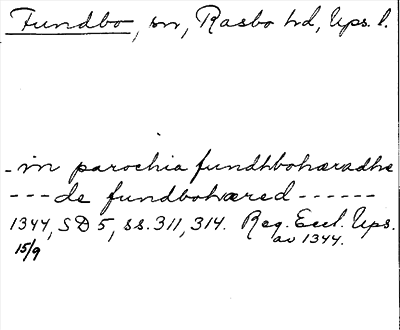 Fundbo, sn, Rasbo hd, Ups. l.
- in parochia fundhbohæradhe
--- de fundbohæred ------
1344, SD 5, ss. 311, 314. Reg. Eccl. Ups.
av 1344.
15/9